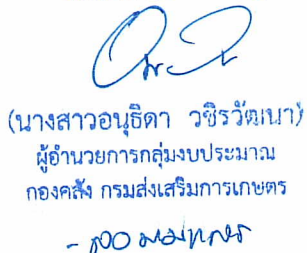 (นางสาวอนุธิดา วชิรวัฒนา)
ผู้อำนวยการกลุ่มงบประมาณ
กองคลัง กรมส่งเสริมการเกษตร